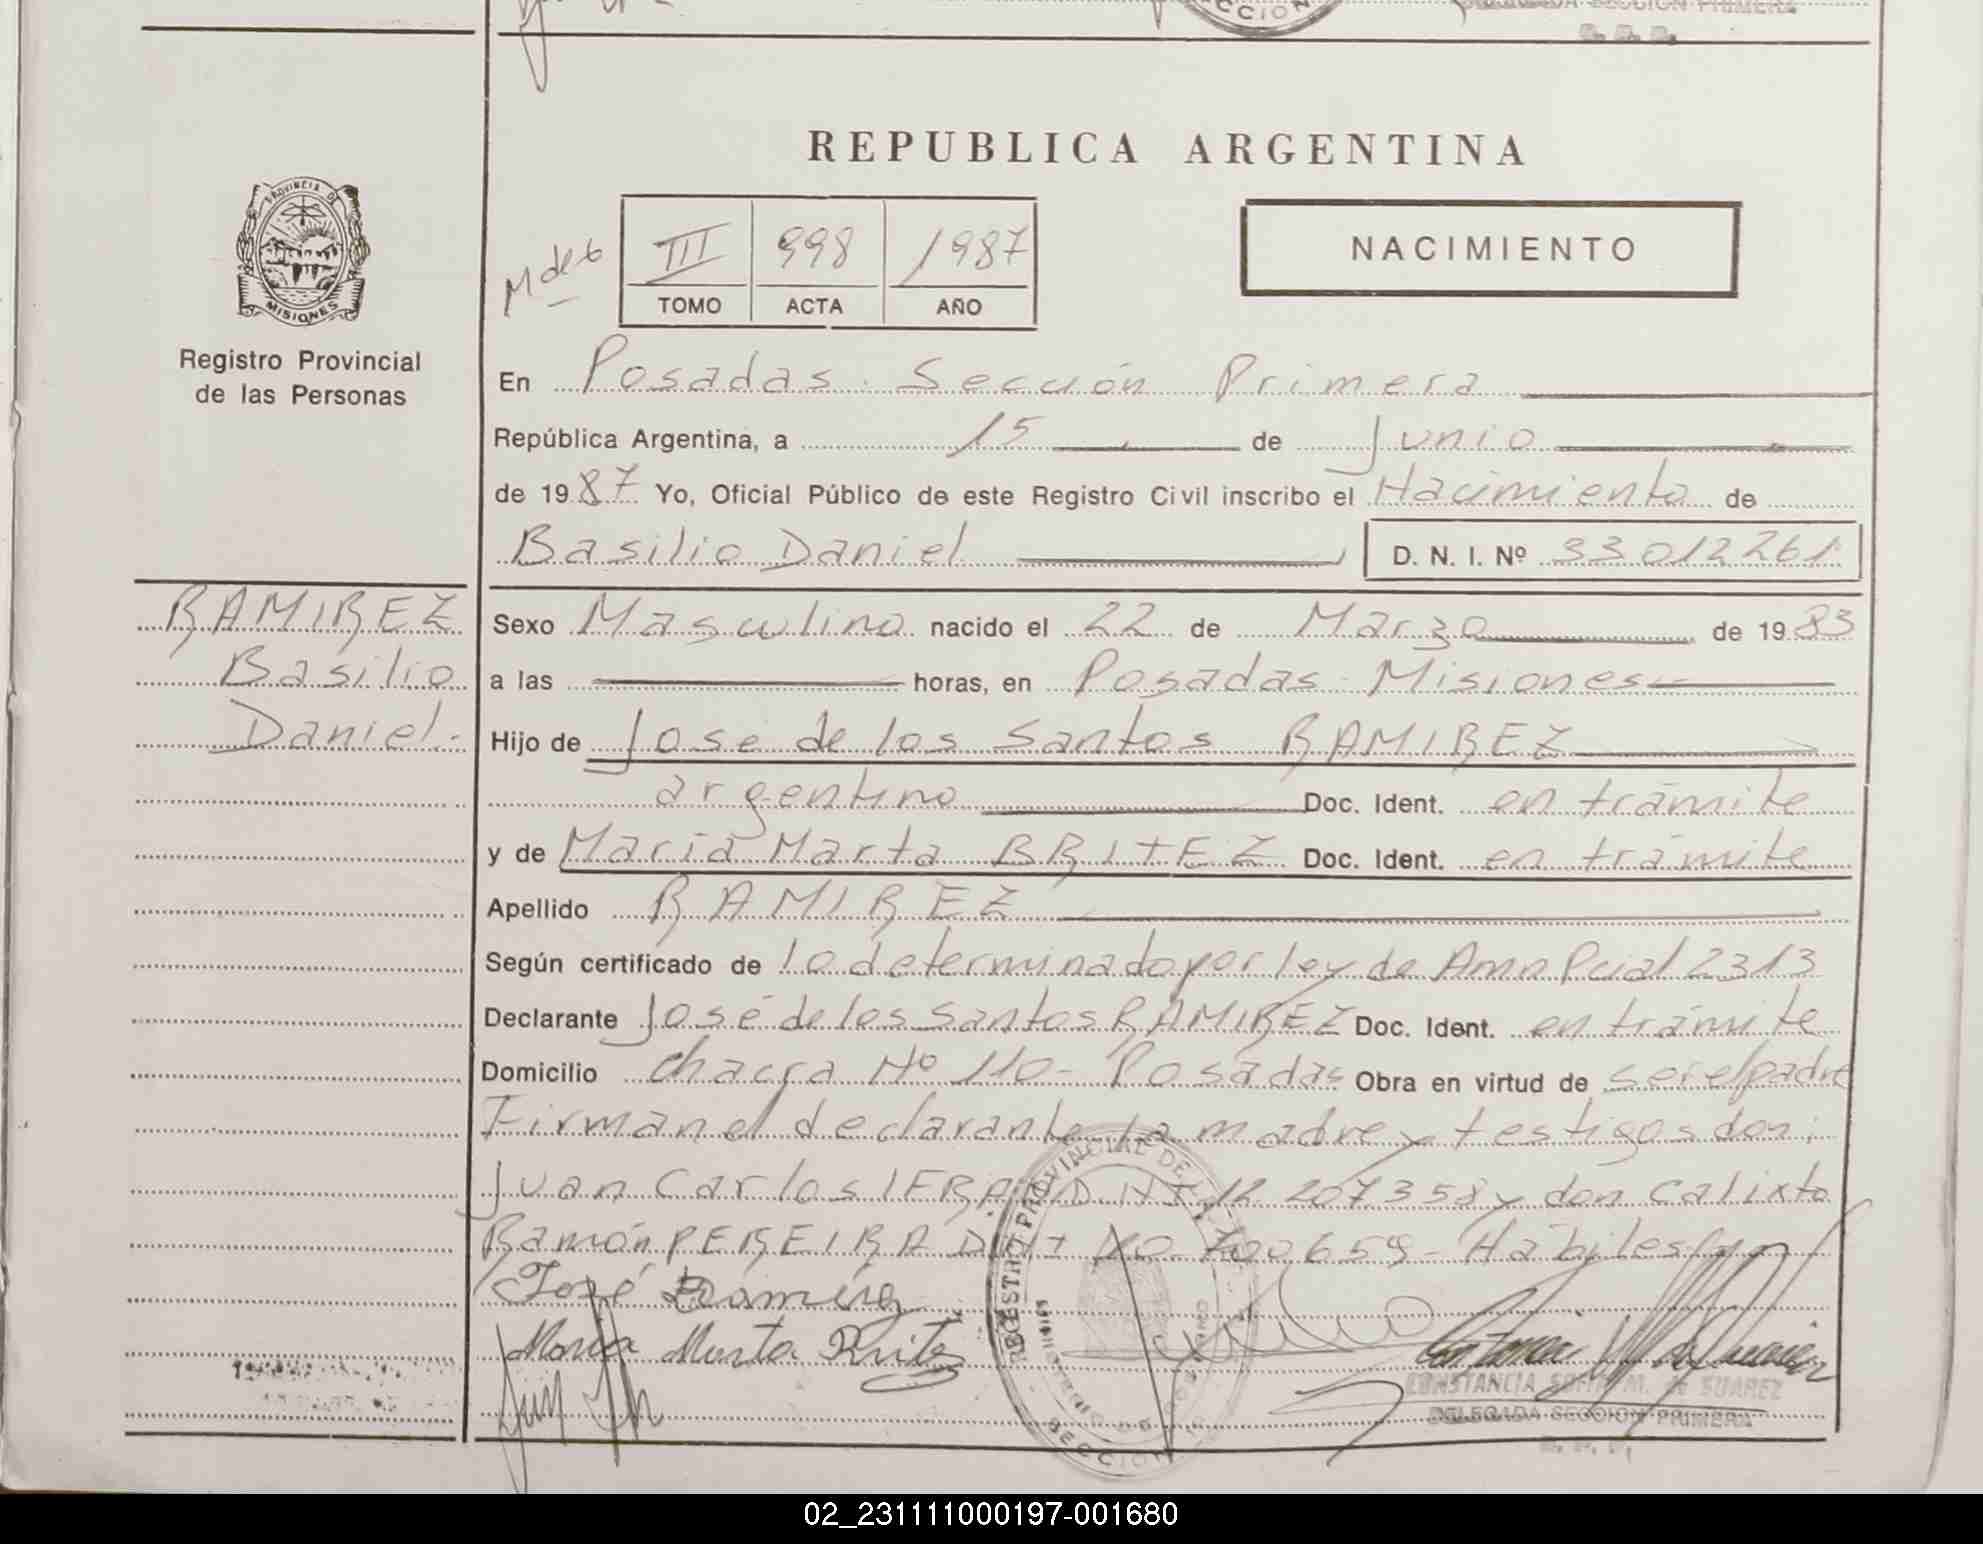 CCION
DELEGADA SECCION PRIMERA
REPUBLICA ARGENTINA
PROVINCIA DE
MISIONES
Registro Provincial
de las Personas
III 998 1987
TOMO ACTA AÑO
NACIMIENTO
En Posadas. Sección Primera
República Argentina, a 15 de Junio
de 1987 Yo, Oficial Público de este Registro Civil inscribo el Nacimiento de
Basilio Daniel D. N. I. Nº 33012261
RAMIREZ
Basilio
Daniel.-
Sexo Masculino nacido el 22 de Marzo de 1983
a las horas, en Posadas - Misiones
Hijo de José de los Santos RAMIREZ
argentino Doc. Ident. en trámite
y de María Marta BRITEZ Doc. Ident. en trámite
Apellido RAMIREZ
Según certificado de lo determinado por ley de Amn Pcial 2313
Declarante José de los Santos RAMIREZ Doc. Ident. en trámite
Domicilio Chacra Nº 110- Posadas Obra en virtud de ser el padre
Firman el declarante, la madre y testigos don:
Juan Carlos D.N.I. 12 207358 y don Calixto
Ramón PEREIRA Hábiles
José Ramírez
María Marta Britez
CONSTANCIA M. de SUAREZ
DELEGADA SECCION PRIMERA
02_231111000197-001680